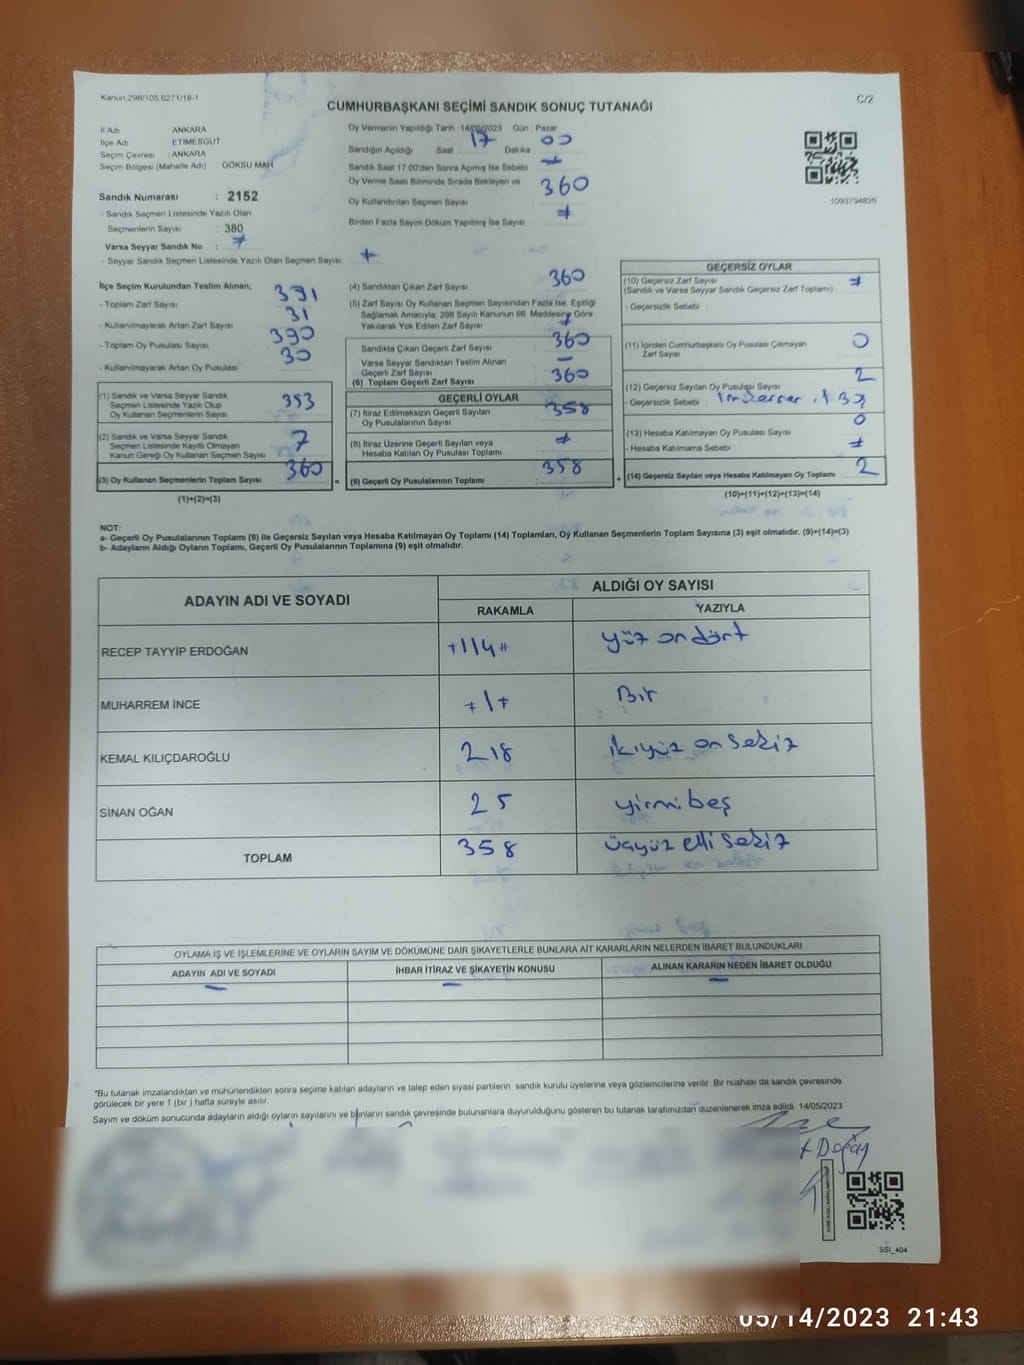 Kanun,298/105,6271/18-1
CUMHURBAŞKANI SEÇİMİ SANDIK SONUÇ TUTANAĞI
C/2
İl Adı ANKARA
İlçe Adı ETIMESGUT
Seçim Çevresi : ANKARA
Seçim Bölgesi (Mahalle Adı) : GÖKSU MAH.
Sandık Numarası : 2152
- Sandık Seçmen Listesinde Yazılı Olan
Seçmenlerin Sayısı : 380
Varsa Seyyar Sandık No :
- Seyyar Sandık Seçmen Listesinde Yazılı Olan Seçmen Sayısı
Oy Vermenin Yapıldığı Tarih :14/05/2023 Gün : Pazar
Sandığın Açıldığı Saat 17 Dakika 00
Sandık Saat 17:00'den Sonra Açımış İse Sebebi
Oy Verme Saati Bitiminde Sırada Bekleyen ve
Oy Kullandırılan Seçmen Sayısı 360
Birden Fazla Sayım Döküm Yapılmış İse Sayısı
1093794826
İlçe Seçim Kurulundan Teslim Alınan;
- Toplam Zarf Sayısı 391
- Kullanılmayarak Artan Zarf Sayısı 31
- Toplam Oy Pusulası Sayısı 390
- Kullanılmayarak Artan Oy Pusulası 30
(1) Sandık ve Varsa Seyyar Sandık
Seçmen Listesinde Yazılı Olup
Oy Kullanan Seçmenlerin Sayısı 353
(2) Sandık ve Varsa Seyyar Sandık
Seçmen Listesinde Kayıtlı Olmayan
Kanun Gereği Oy Kullanan Seçmen Sayısı 7
(3) Oy Kullanan Seçmenlerin Toplam Sayısı 360
(1)+(2)=(3)
(4) Sandıktan Çıkan Zarf Sayısı 360
(5) Zarf Sayısı Oy Kullanan Seçmen Sayısından Fazla İse, Eşitliği
Sağlamak Amacıyla, 298 Sayılı Kanunun 98. Maddesine Göre
Yakılarak Yok Edilen Zarf Sayısı
Sandıkta Çıkan Geçerli Zarf Sayısı 360
Varsa Seyyar Sandıktan Teslim Alınan
Geçerli Zarf Sayısı –
(6) Toplam Geçerli Zarf Sayısı 360
GEÇERLİ OYLAR
(7) İtiraz Edilmeksizin Geçerli Sayılan
Oy Pusulalarının Sayısı 358
(8) İtiraz Üzerine Geçerli Sayılan veya
Hesaba Katılan Oy Pusulası Toplamı
(9) Geçerli Oy Pusulalarının Toplamı 358
GEÇERSİZ OYLAR
(10) Geçersiz Zarf Sayısı
(Sandık ve Varsa Seyyar Sandık Geçersiz Zarf Toplamı)
- Geçersizlik Sebebi :
(11) İçinden Cumhurbaşkanı Oy Pusulası Çıkmayan
Zarf Sayısı 0
(12) Geçersiz Sayılan Oy Pusulası Sayısı 2
- Geçersizlik Sebebi :
(13) Hesaba Katılmayan Oy Pusulası Sayısı 0
- Hesaba Katılmama Sebebi :
(14) Geçersiz Sayılan veya Hesaba Katılmayan Oy Toplamı 2
(10)+(11)+(12)+(13)=(14)
NOT:
a- Geçerli Oy Pusulalarının Toplamı (9) ile Geçersiz Sayılan veya Hesaba Katılmayan Oy Toplamı (14) Toplamları, Oy Kullanan Seçmenlerin Toplam Sayısına (3) eşit olmalıdır. (9)+(14)=(3)
b- Adayların Aldığı Oyların Toplamı, Geçerli Oy Pusulalarının Toplamına (9) eşit olmalıdır.
ADAYIN ADI VE SOYADI ALDIĞI OY SAYISI
RAKAMLA YAZIYLA
RECEP TAYYİP ERDOĞAN 114 yüz on dört
MUHARREM İNCE 1 Bir
KEMAL KILIÇDAROĞLU 218 ikiyüz on sekiz
SİNAN OĞAN 25 yirmi beş
TOPLAM 358 üçyüz elli sekiz
OYLAMA İŞ VE İŞLEMLERİNE VE OYLARIN SAYIM VE DÖKÜMÜNE DAİR ŞİKAYETLERLE BUNLARA AİT KARARLARIN NELERDEN İBARET BULUNDUKLARI
ADAYIN ADI VE SOYADI İHBAR İTİRAZ VE ŞİKAYETİN KONUSU ALINAN KARARIN NEDEN İBARET OLDUĞU
– – –
*Bu tutanak imzalandıktan ve mühürlendikten sonra seçime katılan adayların ve talep eden siyasi partilerin sandık kurulu üyelerine veya gözlemcilerine verilir. Bir nüshası da sandık çevresinde
görülecek bir yere 1 (bir ) hafta süreyle asılır.
Sayım ve döküm sonucunda adayların aldığı oyların sayılarını ve bunların sandık çevresinde bulunanlara duyurulduğunu gösteren bu tutanak tarafımızdan düzenlenerek imza edildi. 14/05/2023
Doğay
SSI_404
05/14/2023 21:43